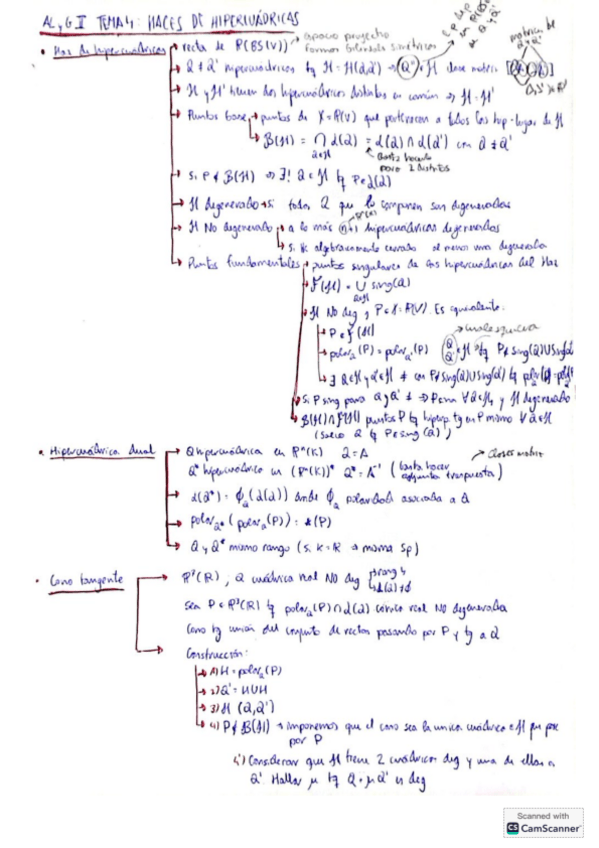 AL y G II TEMA 4: HACES DE HIPERCUÁDRICAS
• Haz de hipercuádricas → recta de P(BS(V)) → espacio proyectivo formas bilineales simétricas
→ Q ≠ Q' hipercuádricas tq H = H(Q,Q') → Q'' ∈ H clase matriz
matrices de Q y Q'
→ H y H' tienen dos hipercuádricas distintas en común ⇒ H = H'
→ Puntos base → puntos de X = P(V) que pertenecen a todos los hip-lugar de H
B(H) = ∩ L(Q) = L(Q) ∩ L(Q') con Q ≠ Q'
Q∈H
basta hacerlo para 2 distintos
→ Si P ∉ B(H) ⇒ ∃! Q ∈ H tq P ∈ L(Q)
→ H degenerado → si todas Q que lo componen son degeneradas
→ H No degenerado → a lo más n+1 hipercuádricas degeneradas
→ Si K algebraicamente cerrado al menos una degenerada
→ Puntos fundamentales → puntos singulares de las hipercuádricas del Haz
F(H) = ∪ Sing(Q)
Q∈H
H No deg y P ∈ X = P(V). Es equivalente:
→ P ∈ F(H)
→ polar_Q(P) = polar_Q'(P) Q, Q' ∈ H tq P ∉ Sing(Q) ∪ Sing(Q')
cualesquiera
→ ∃ Q ∈ H y Q' ∈ H ≠ con P ∉ Sing(Q) ∪ Sing(Q') tq polar_Q(P) = polar_Q'(P)
→ Si P sing para Q y Q' ≠ ⇒ P en ∀Q∈H y H degenerado
→ B(H) ∩ F(H) puntos P tq hiperp. tg en P mismo ∀Q∈H
(salvo Q tq P ∈ Sing(Q))
• Hipercuádrica dual → Q hipercuádrica en Pⁿ(K) Q = A
Q* hipercuádrica en (Pⁿ(K))* Q* = A⁻¹ (basta hacer adjunta traspuesta) → clases matriz
→ L(Q*) = ϕ_Q(L(Q)) donde ϕ_Q polaridad asociada a Q
→ polar_Q*(polar_Q(P)) = *(P)
→ Q y Q* mismo rango (si K = R → misma Sp)
• Cono tangente → P³(R), Q cuádrica real NO deg → rang 4
→ L(Q) ≠ ∅
Sea P ∈ P³(R) tq polar_Q(P) ∩ L(Q) cónica real NO degenerada
Cono tg unión del conjunto de rectas pasando por P y tg a Q
→ Construcción:
→ 1) H = polar_Q(P)
→ 2) Q' = H ∪ H
→ 3) H (Q,Q')
→ 4) P ∉ B(H) → imponemos que el cono sea la única cuádrica ∈ H que pase por P
4') Considerar que H tiene 2 cuádricas deg y una de ellas es
Q'. Hallar μ tq Q + μQ' es deg
Scanned with
CS CamScanner